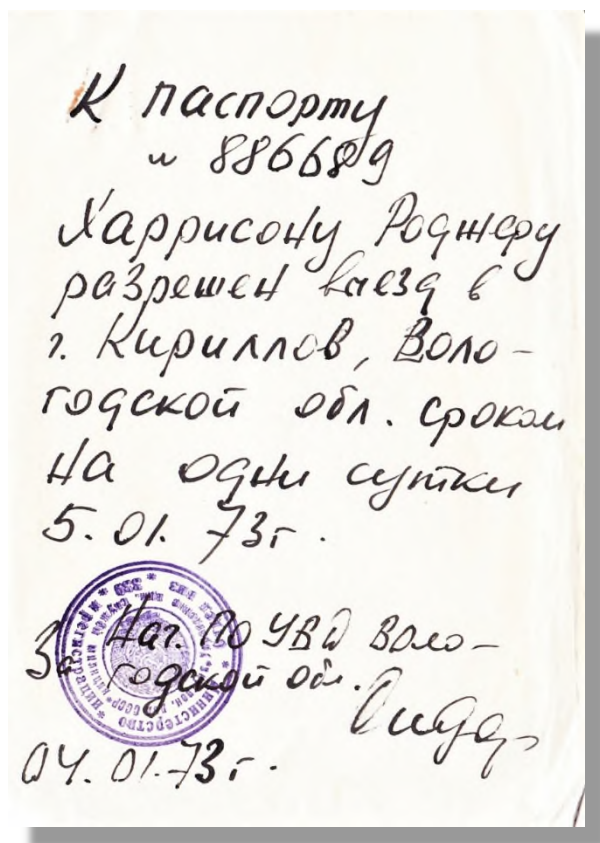 К паспорту
н 886689
Харрисону Роджеру
разрешен въезд в
г. Кириллов, Воло-
годской обл. сроком
на одни сутки
5.01.73г.
За Нач. ПО УВД Воло-
годской обл.
04.01.73г.